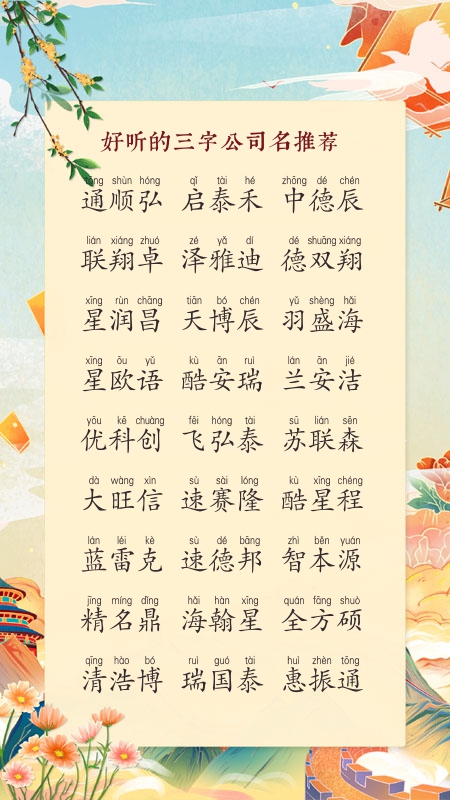 好听的三字公司名推荐
tōng shùn hóng qǐ tài hé zhōng dé chén
通顺弘 启泰禾 中德辰
lián xiáng zhuó zé yǎ dí dé shuāng xiáng
联翔卓 泽雅迪 德双翔
xīng rùn chāng tiān bó chén yǔ shèng hǎi
星润昌 天博辰 羽盛海
xīng ōu yǔ kù ān ruì lán ān jié
星欧语 酷安瑞 兰安洁
yōu kē chuàng fēi hóng tài sū lián sēn
优科创 飞弘泰 苏联森
dà wàng xìn sù sài lóng kù xīng chéng
大旺信 速赛隆 酷星程
lán léi kè sù dé bāng zhì běn yuán
蓝雷克 速德邦 智本源
jīng míng dǐng hǎi hàn xīng quán fāng shuò
精名鼎 海翰星 全方硕
qīng hào bó ruì guó tài huì zhèn tōng
清浩博 瑞国泰 惠振通